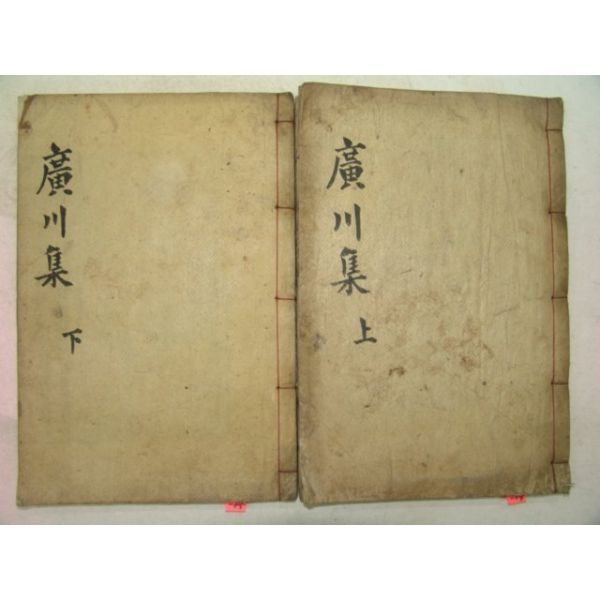 廣川集
上
廣川集
下